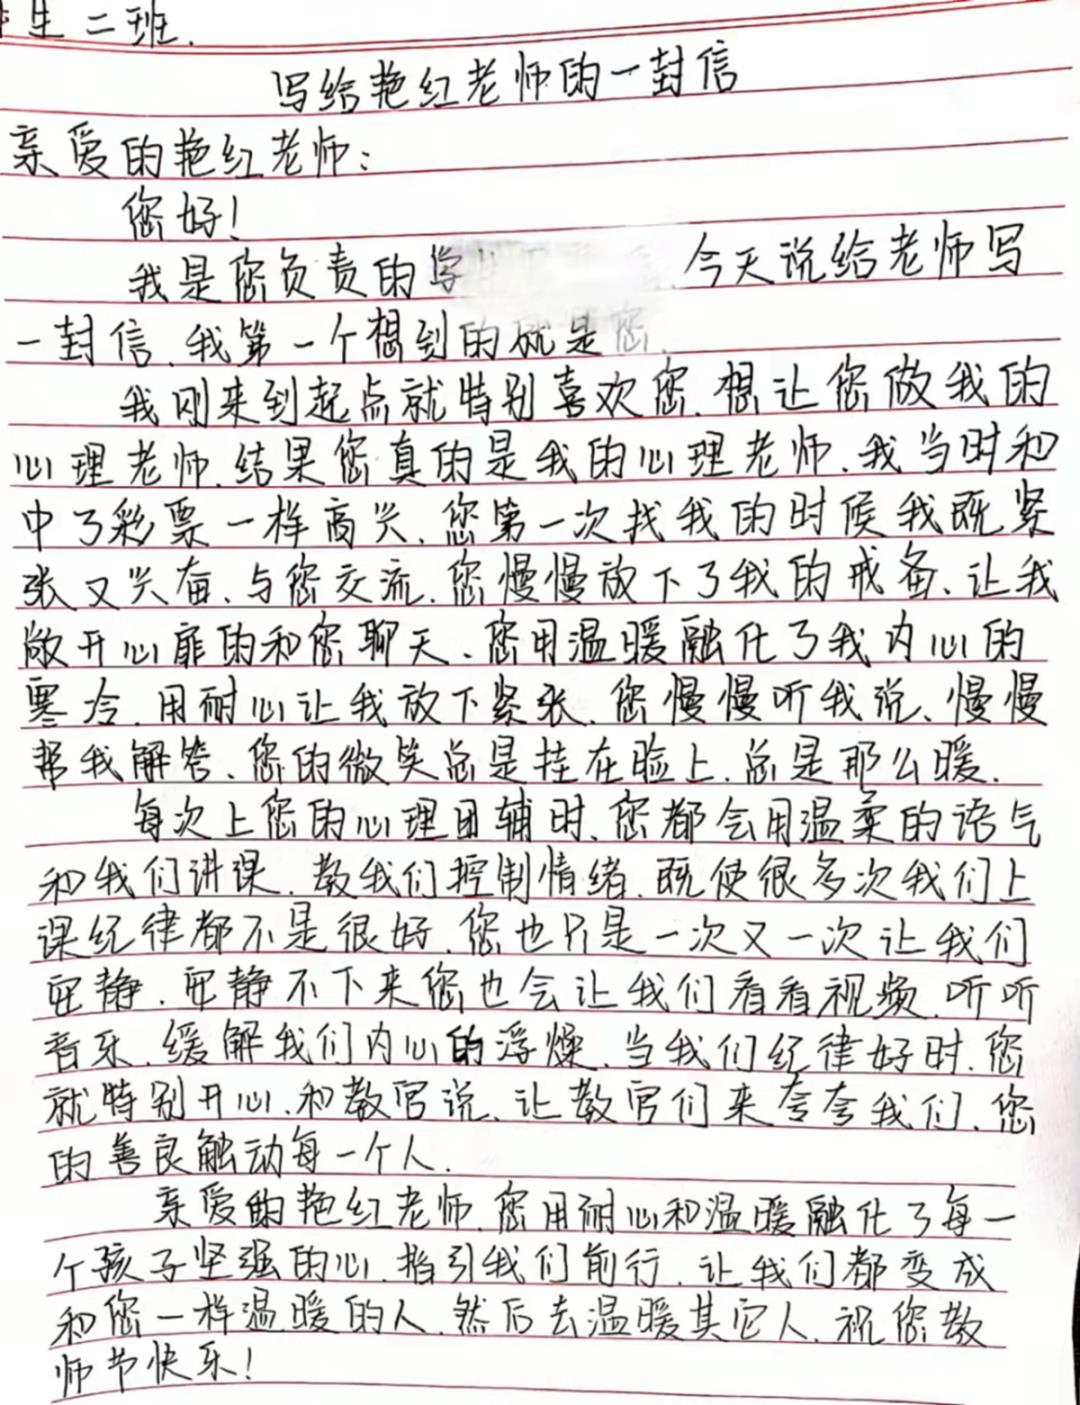 生二班.
写给艳红老师的一封信
亲爱的艳红老师:
您好!
我是您负责的学 今天说给老师写
一封信.我第一个想到的就是您.
我刚来到起点就特别喜欢您.想让您做我的
心理老师.结果您真的是我的心理老师.我当时和
中了彩票一样高兴.您第一次找我的时候我既紧
张又兴奋、与您交流.您慢慢放下了我的戒备、让我
敞开心扉的和您聊天、您用温暖融化了我内心的
寒冷.用耐心让我放下紧张.您慢慢听我说、慢慢
帮我解答、您的微笑总是挂在脸上.总是那么暖.
每次上您的心理团辅时、您都会用温柔的语气
和我们讲课.教我们控制情绪.既使很多次我们上
课纪律都不是很好.您也只是一次又一次让我们
安静.安静不下来您也会让我们看看视频.听听
音乐.缓解我们内心的浮燥.当我们纪律好时.您
就特别开心、和教官说.让教官们来夸夸我们、您
的善良触动每一个人.
亲爱的艳红老师.您用耐心和温暖融化了每一
个孩子坚强的心.指引我们前行.让我们都变成
和您一样温暖的人.然后去温暖其它人.祝您教
师节快乐!